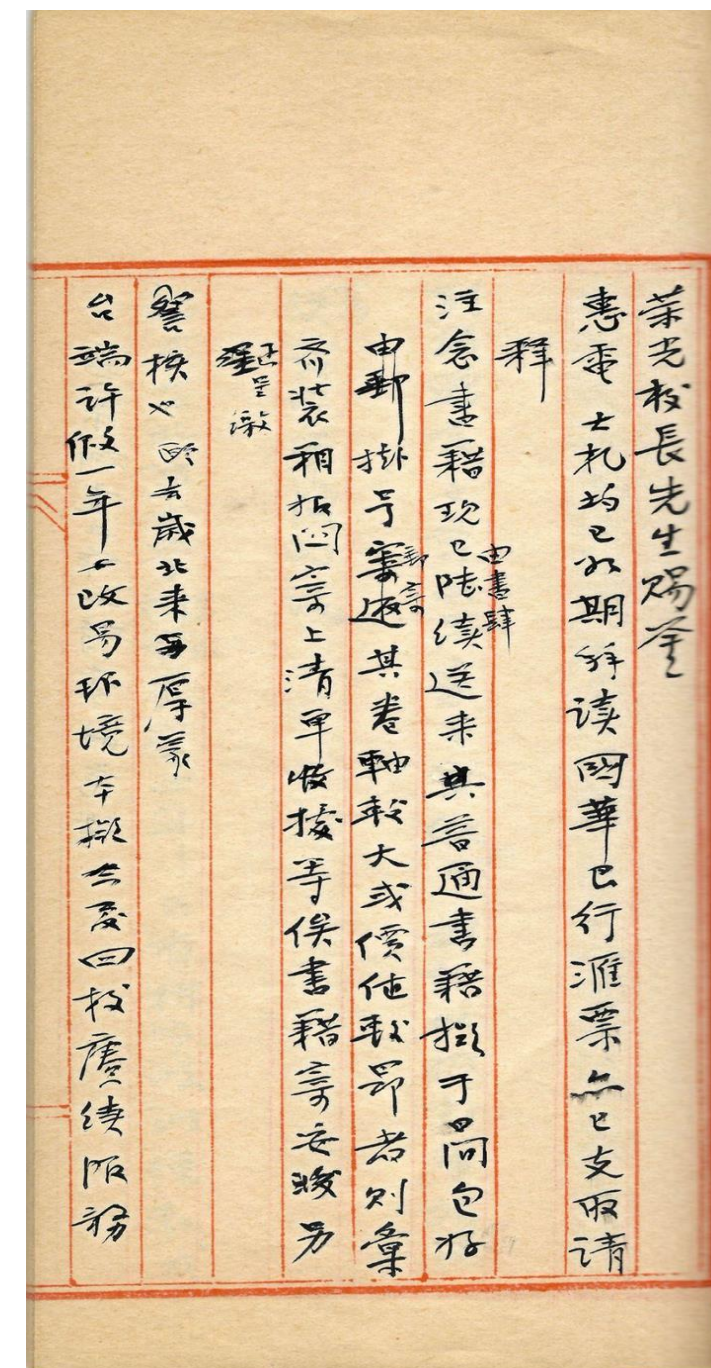 荣光校長先生賜鉴
惠電大札均已如期拜读國華已行滙票亦已支取请
释
注念書籍现已由書肆陆续送来其普通書籍拟于日间包好
由郵掛号郵寄其卷軸較大或價值較昂者则彙
齐装箱拓図寄上清單收據等俟書籍寄妥後另
呈缴
詧核也 去歳北来厚蒙
台端许假一年改易环境本拟今夏回校赓续服務